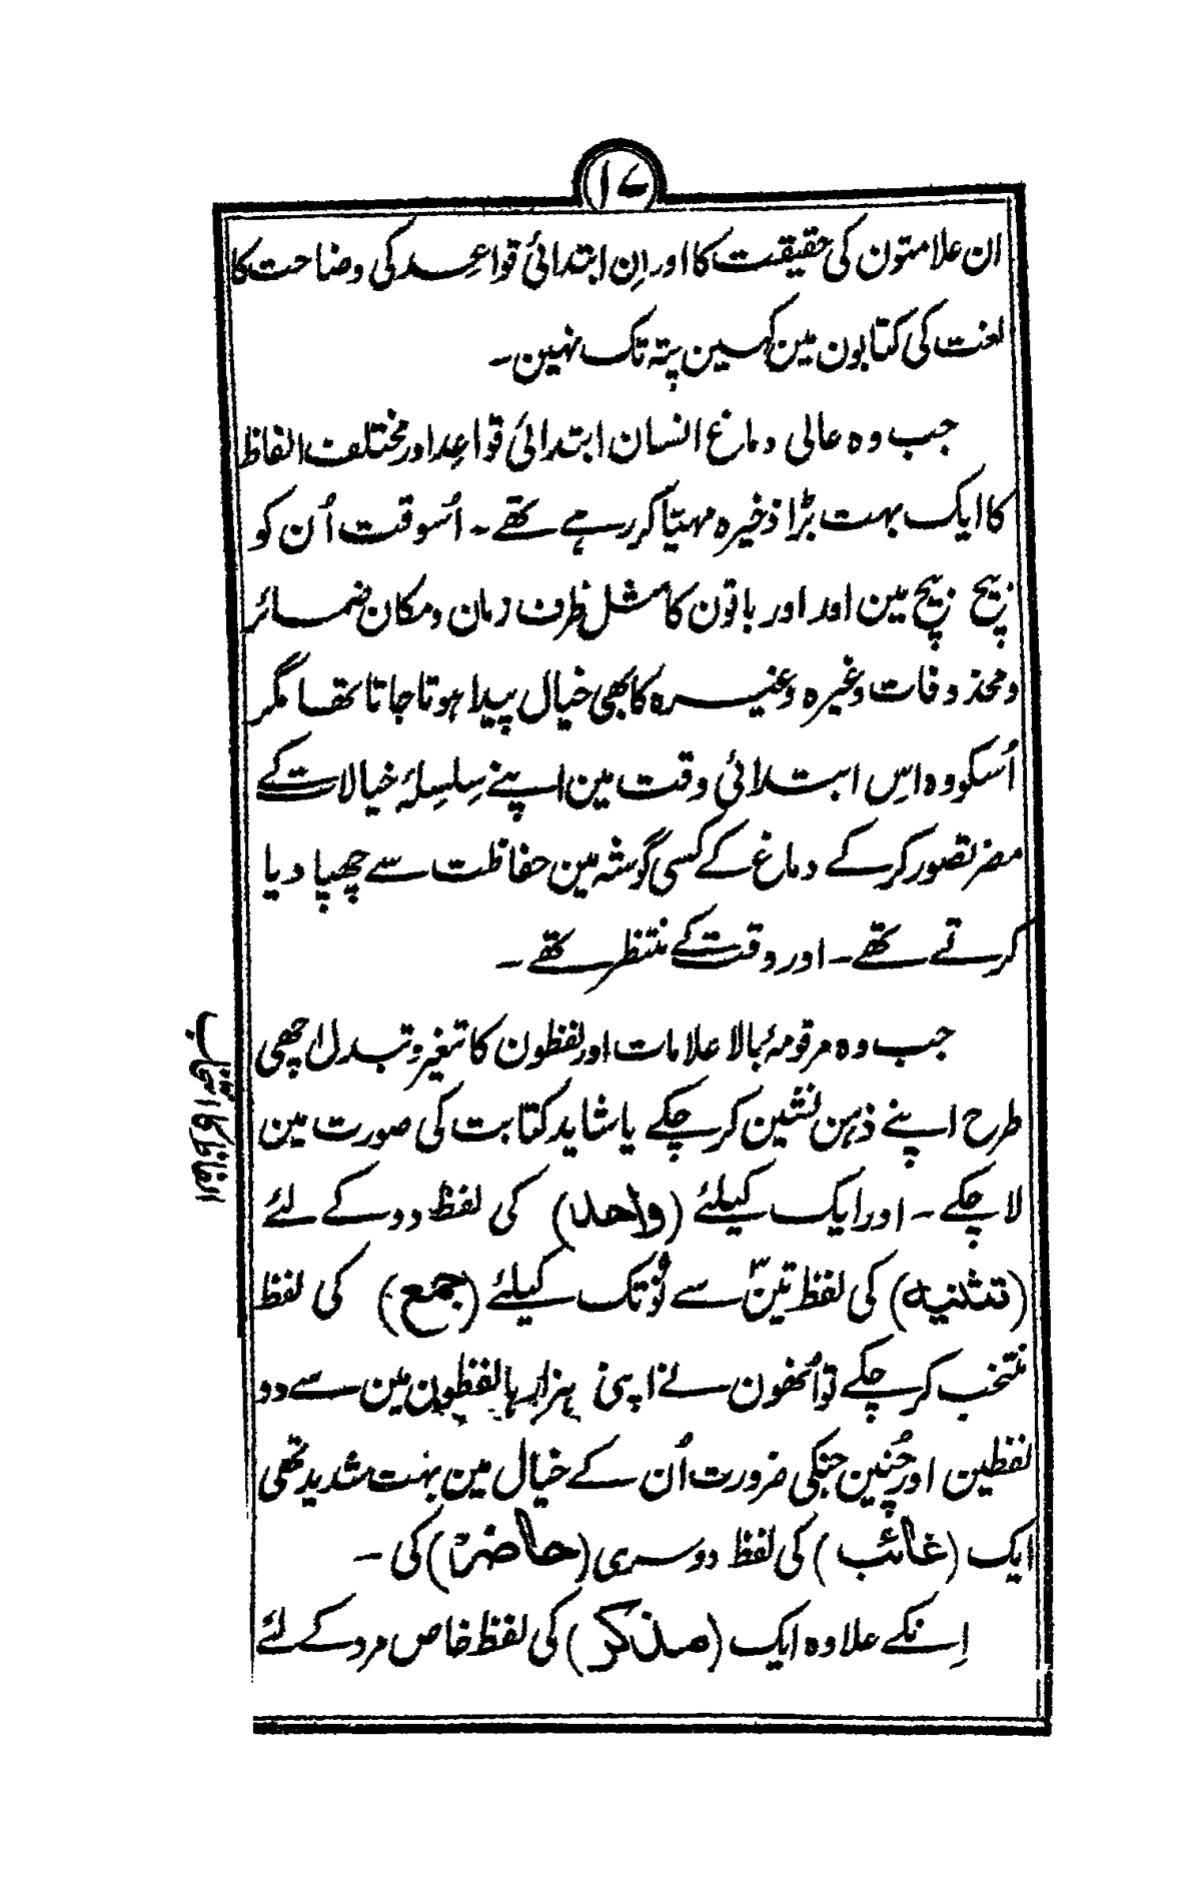 ۱۷
ان علامتون کی حقیقت کا اور اِن ابتدائی قواعد کی وضاحت کا
لغت کی کتابون مین کہین پتہ تک نہین۔
جب وہ عالی دماغ انسان ابتدائی قواعد اور مختلف الفاظ
کا ایک بہت بڑا ذخیرہ مہیّا کر رہے تھے۔ اُسوقت اُن کو
بیچ بیچ مین اور اور باتون کا مثل ظرف زمان و مکان ضمائر
و محذوفات وغیرہ وغیرہ کا بھی خیال پیدا ہوتا جاتا تھا مگر
اُسکو وہ اِس ابتدائی وقت مین اپنے سِلسِلۂ خیالات کے
مضر تصور کر کے دماغ کے کسی گوشہ مین حفاظت سے چھپا دیا
کرتے تھے۔ اور وقت کے منتظر تھے۔
جب وہ مرقومۂ بالا علامات اور لفظون کا تغیر و تبدل اچھی
طرح اپنے ذہن نشین کر چکے یا شاید کتابت کی صورت مین
لا چکے۔ اور ایک کیلئے (واحد) کی لفظ دو کے لئے
(تثنیہ) کی لفظ تین۳ سے نو۹ تک کیلئے (جمع) کی لفظ
منتخب کر چکے تو اُنھون نے اپنی ہزارہا لفظون مین سے دو
لفظین اور چُنین جنکی ضرورت اُن کے خیال مین بہت شدید تھی
ایک (غائب) کی لفظ دوسری (حاضر) کی۔
اِنکے علاوہ ایک (مذکر) کی لفظ خاص مرد کے لئے
الفاظ کا انتخاب